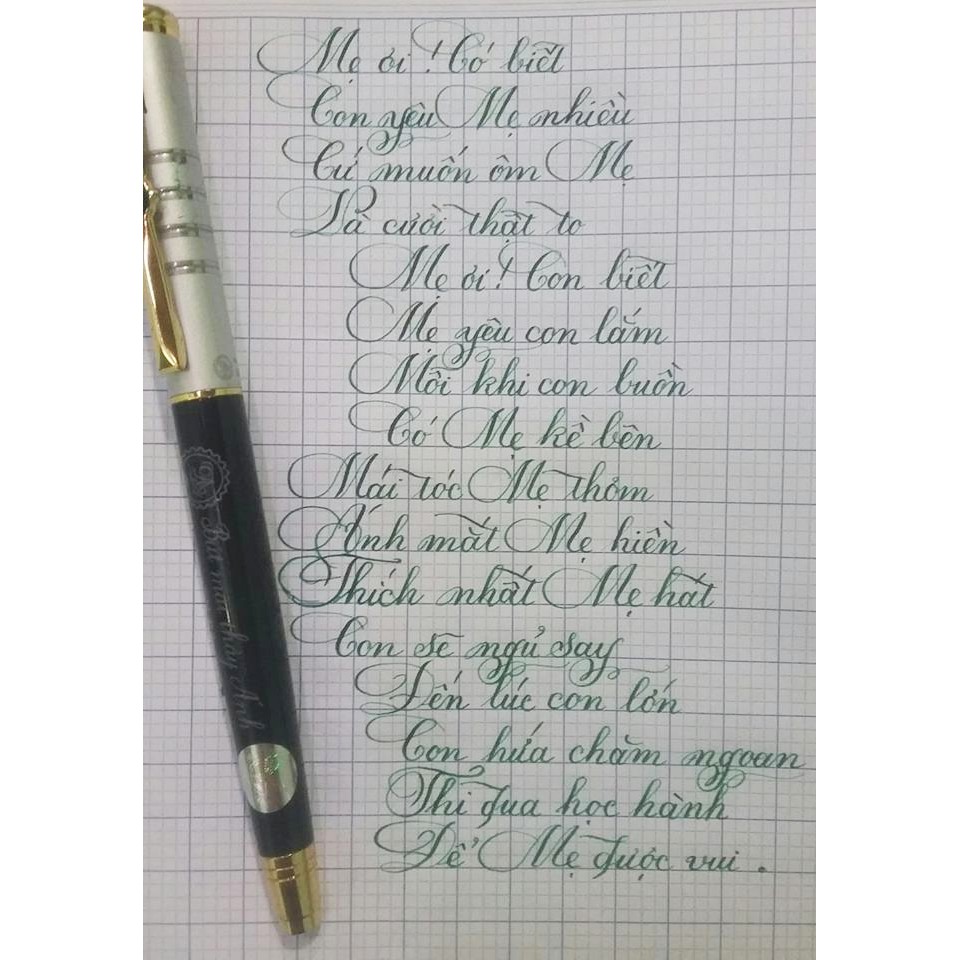 Mẹ ơi! Có biết
Con yêu Mẹ nhiều
Cứ muốn ôm Mẹ
Và cười thật to
Mẹ ơi! Con biết
Mẹ yêu con lắm
Mỗi khi con buồn
Có Mẹ kề bên
Mái tóc Mẹ thơm
Ánh mắt Mẹ hiền
Thích nhất Mẹ hát
Con sẽ ngủ say
Đến lúc con lớn
Con hứa chăm ngoan
Thi đua học hành
Để Mẹ được vui.
Bút mài thầy Ánh